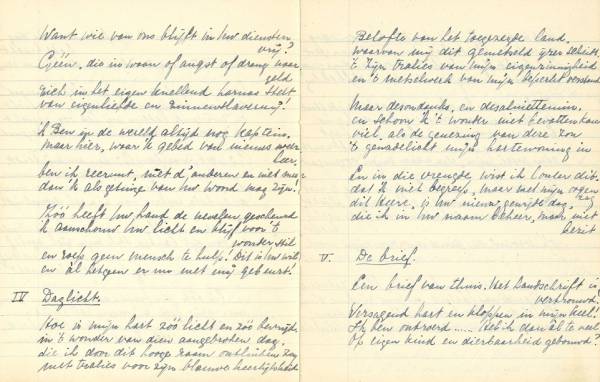 Want wie van ons blijft in Uw diensten
vrij?
Géén, die in waan of angst of drang naar
geld
zich in het eigen knellend harnas stelt
van eigenliefde en zinnenslavernij!
'k Ben in de wereld altijd nog kaptein.
Maar hier, waar 'k gebed van nieuws weer
leer,
ben ik recruut, niet d' anderen en niet meer
dan 'k als getuige van Uw Woord mag zijn!
Zóó heeft Uw hand de nevelen gescheurd
'k aanschouw Uw licht en blijf voor 't
wonder stil
en roep geen mensch te hulp! Dit is Uw wil
en àl hetgeen er nu met mij gebeurt!
IV Daglicht.
Hoe is mijn hart zóó licht en zóó bevrijd
in 't wonder van dien aangebroken dag,
die ik door dit hooge raam ontluiken zag
met tralies voor zijn blauwe heerlijkheid
Belofte van het toegezegde land,
waarvan mij dit gemetseld ijzer scheidt.
't Zijn tralies van mijn eigenzinnigheid
en 't metselwerk van mijn beperkt verstand
Maar desondanks, en desalniettemin,
en schoon ik 't wonder niet bevatten kan
viel, als de genezing van dere zon
't genadelicht mijn hartewoning in
En in die vreugde wist ik louter dit:
dat ik niet begreep, maar met mijn oogen
zag
dit Heere, is Uw nieuw gewijde dag,
die ik in Uw naam beheer, maar niet
bezit
V. De brief.
Een brief van thuis. Het handschrift is
vertrouwd.
Verjagend hart en kloppen in mijn keel!
Ik ben ontroerd..... Heb ik dan al te veel
op eigen kind en dierbaarheid gebouwd?